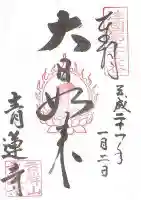 奉拝
平成二十一年
一月二日
大日如来
青蓮寺